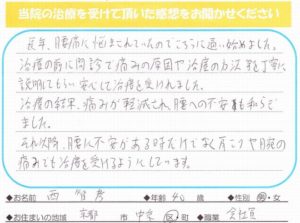 当院の治療を受けて頂いた感想をお聞かせください
長年、腰痛に悩まされていたのでこちらに通い始めました。
治療の前に問診で痛みの原因や治療の方法を丁寧に
説明してもらい安心して治療を受けれました。
治療の結果、痛みが軽減され腰への不安も和らぎ
ました。
それ以降、腰に不安がある時だけでなく肩こりや目の疲れ
痛みでも治療を受けるようにしています。
◆お名前 西 智彦 ◆年齢 40 歳 ◆性別 男・女
◆お住まいの地域 京都 市 中京 区 町 ◆職業 会社員